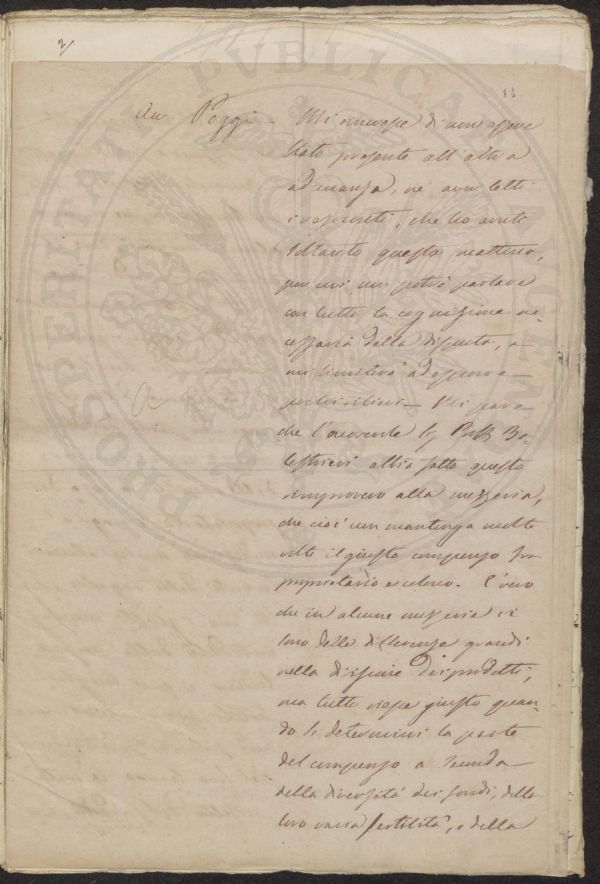 2/
11
Av. Poggi — Mi rincresce di non essere
stato presente all'altra
adunanza, nè aver letti
i rapporti, che ho avuti
soltanto questa mattina,
per cui non potrò parlare
con tutta la cognizione ne-
cessaria della disputa, e
mi limiterò ad esporre
pochi rilievi — Mi pare
che l'onorevole Sig. Prof. Ba-
lestrieri abbia fatto questo
rimprovero alla mezzeria,
che cioè non mantenga molte
volte il giusto compenso fra
proprietario e colono. È vero
che in alcune mezzerie vi
sono delle differenze grandi
nella divisione dei prodotti,
ma tutto riesce giusto quan-
do si determini la parte
del compenso a seconda
della diversità dei fondi, della
loro varia fertilità, e della
PROSPERITATE PUBLICA AUGENDA